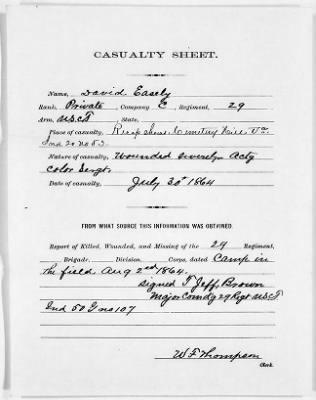 CASUALTY SHEET.
Name, David Easely
Rank, Private, Company C, Regiment, 29
Arm, U.S.C.T, State,
Place of casualty, Cemetery Hill Va
Ind 20 No 53
Nature of casualty, Wounded severely Actg
Color Sergt.
Date of casualty, July 30" 1864
FROM WHAT SOURCE THIS INFORMATION WAS OBTAINED.
Report of Killed, Wounded, and Missing of the 29 Regiment,
Brigade, Division, Corps, dated Camp in
the field Aug 2nd 1864.
Signed T Jeff. Brown
Major Comdg 29 Regt USCT
Ind 50 G no 107
W F Thompson
Clerk.